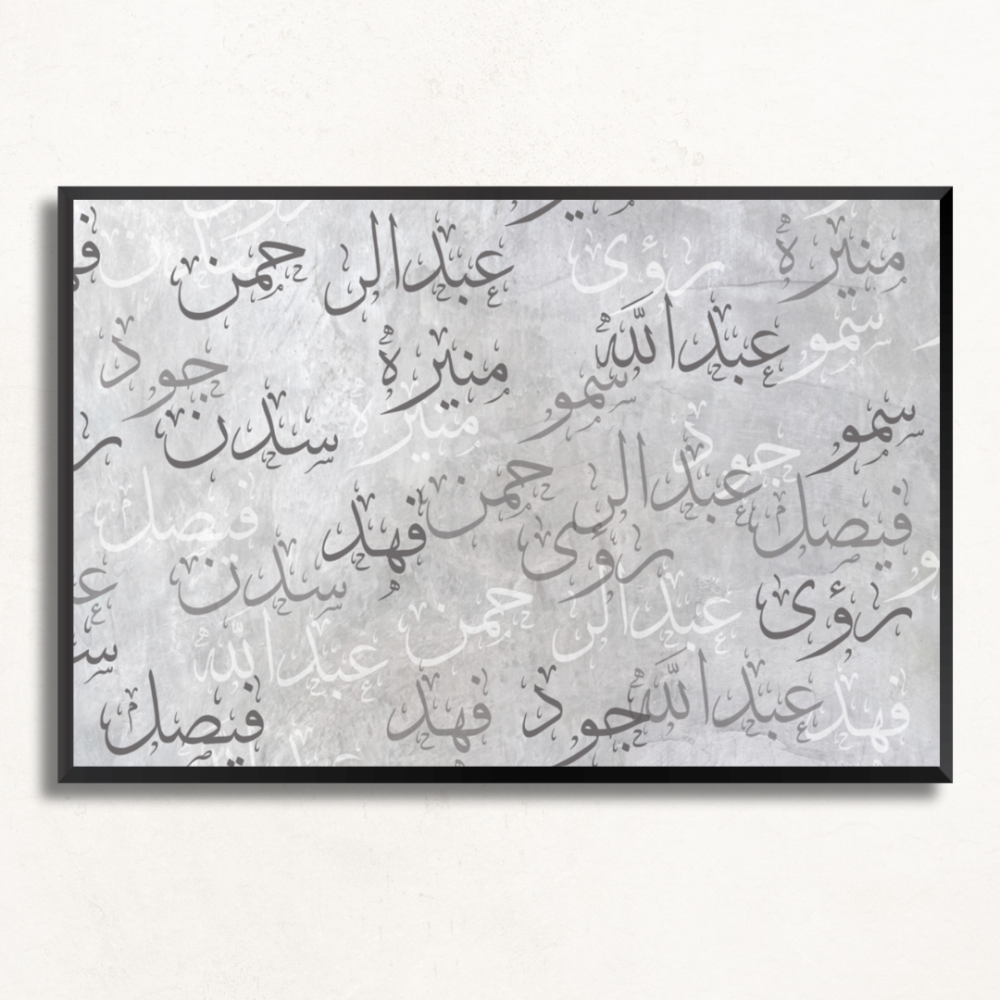 منيرة رؤى عبدالرحمن
سمو عبدالله منيرة جود
سمو سمو منيرة سدن
جود
فيصل عبدالرحمن فهد فيصل
رؤى سدن
رؤى عبدالرحمن عبدالله
فهد عبدالله جود فهد فيصل